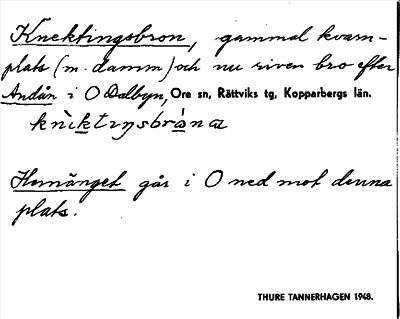 Knektingsbron, gammal kvarn-
plats (m. damm) och nu riven bro efter
Andån i O Dalbyn, Ore sn, Rättviks tg, Kopparbergs län.
Hemänget går i O ned mot denna
plats.
THURE TANNERHAGEN 1948.